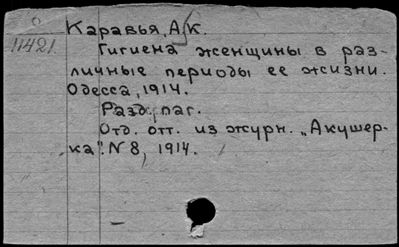 Каравья, А.К.
11421
Гигиена женщины в раз-
личные периоды ее жизни.
Одесса, 1914.
Разд. паг.
Отд. отт. из журн. „Акушер-
ка". N 8, 1914.